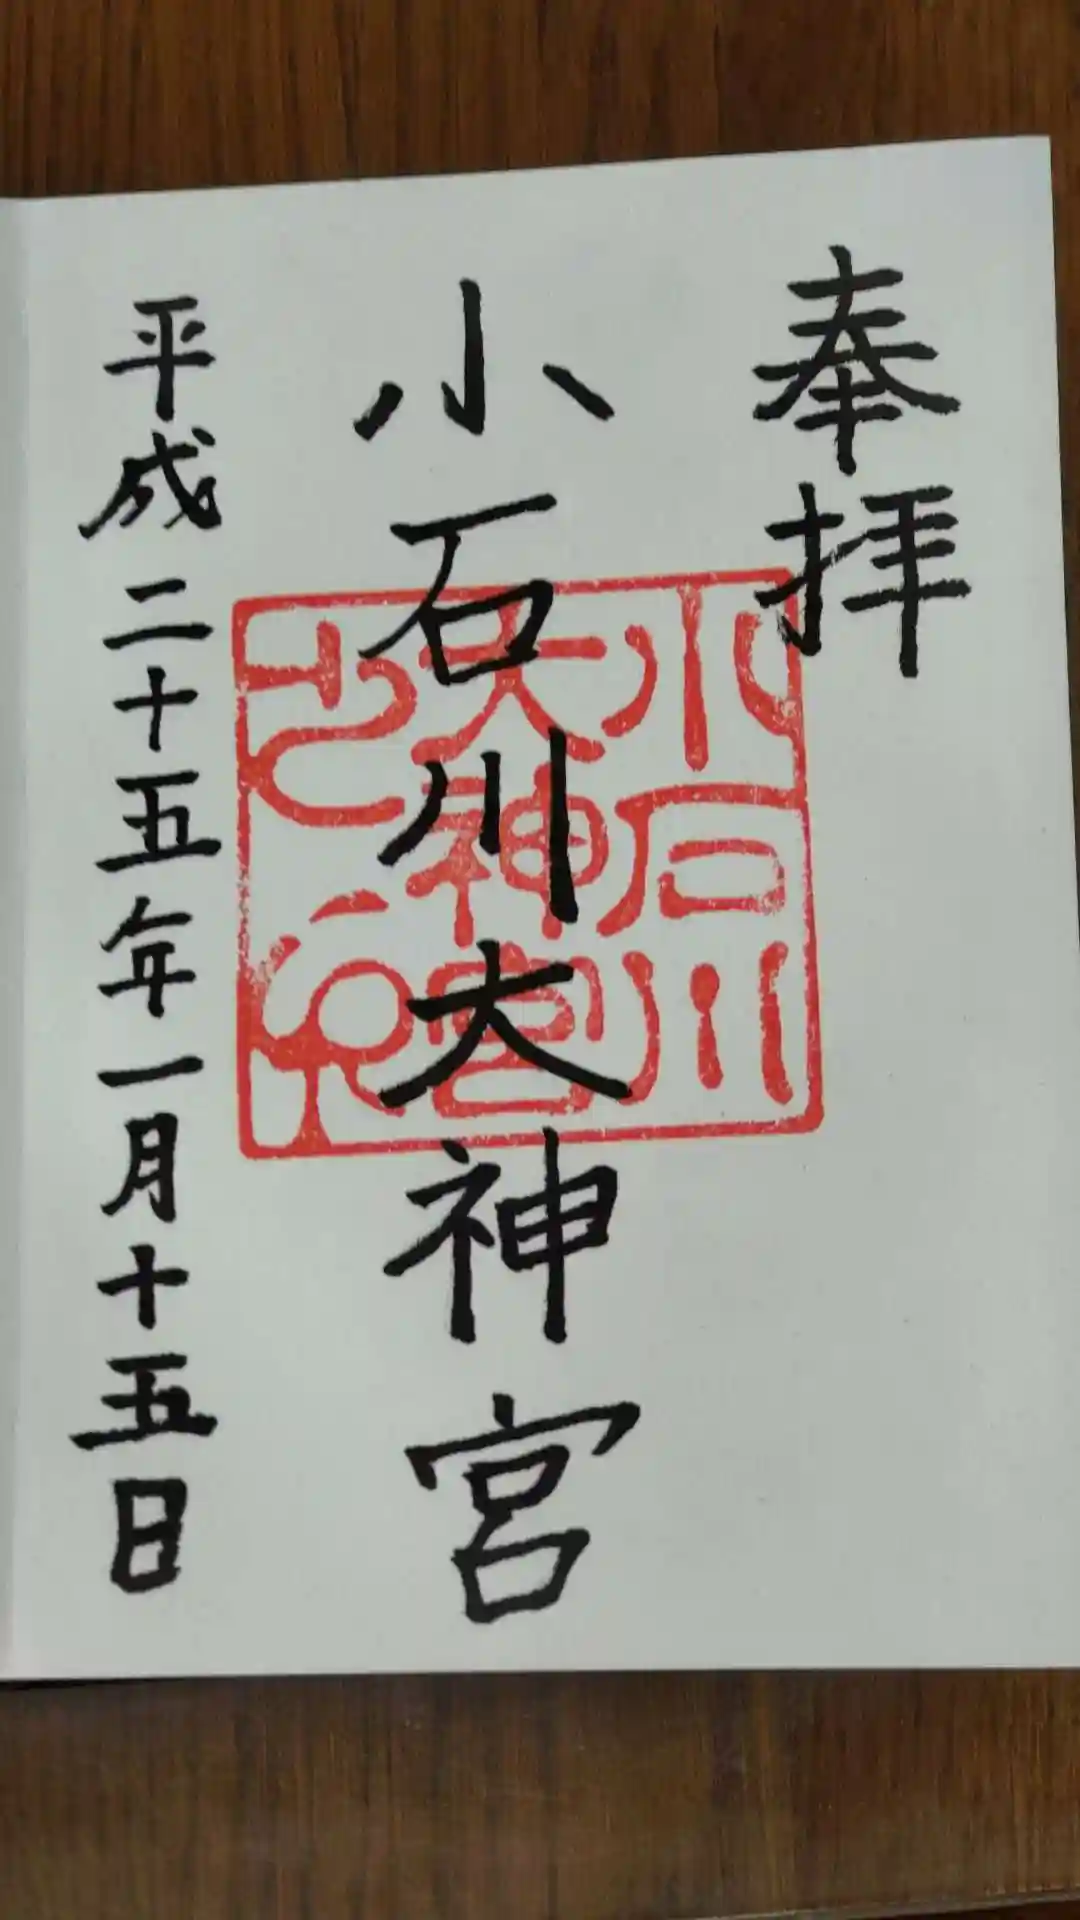 奉拝
小石川大神宮
平成二十五年一月十五日
小石川
大神宮
之印